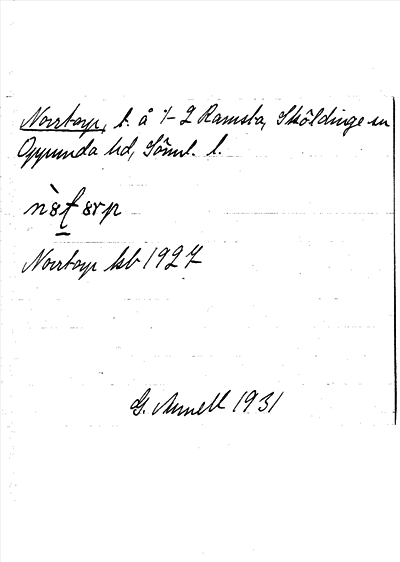 Norrtorp, t. å 1-2 Ramsta, Sköldinge sn
Oppunda hd, Söml. l.
Norrtorp kb 1927
G. Annell 1931